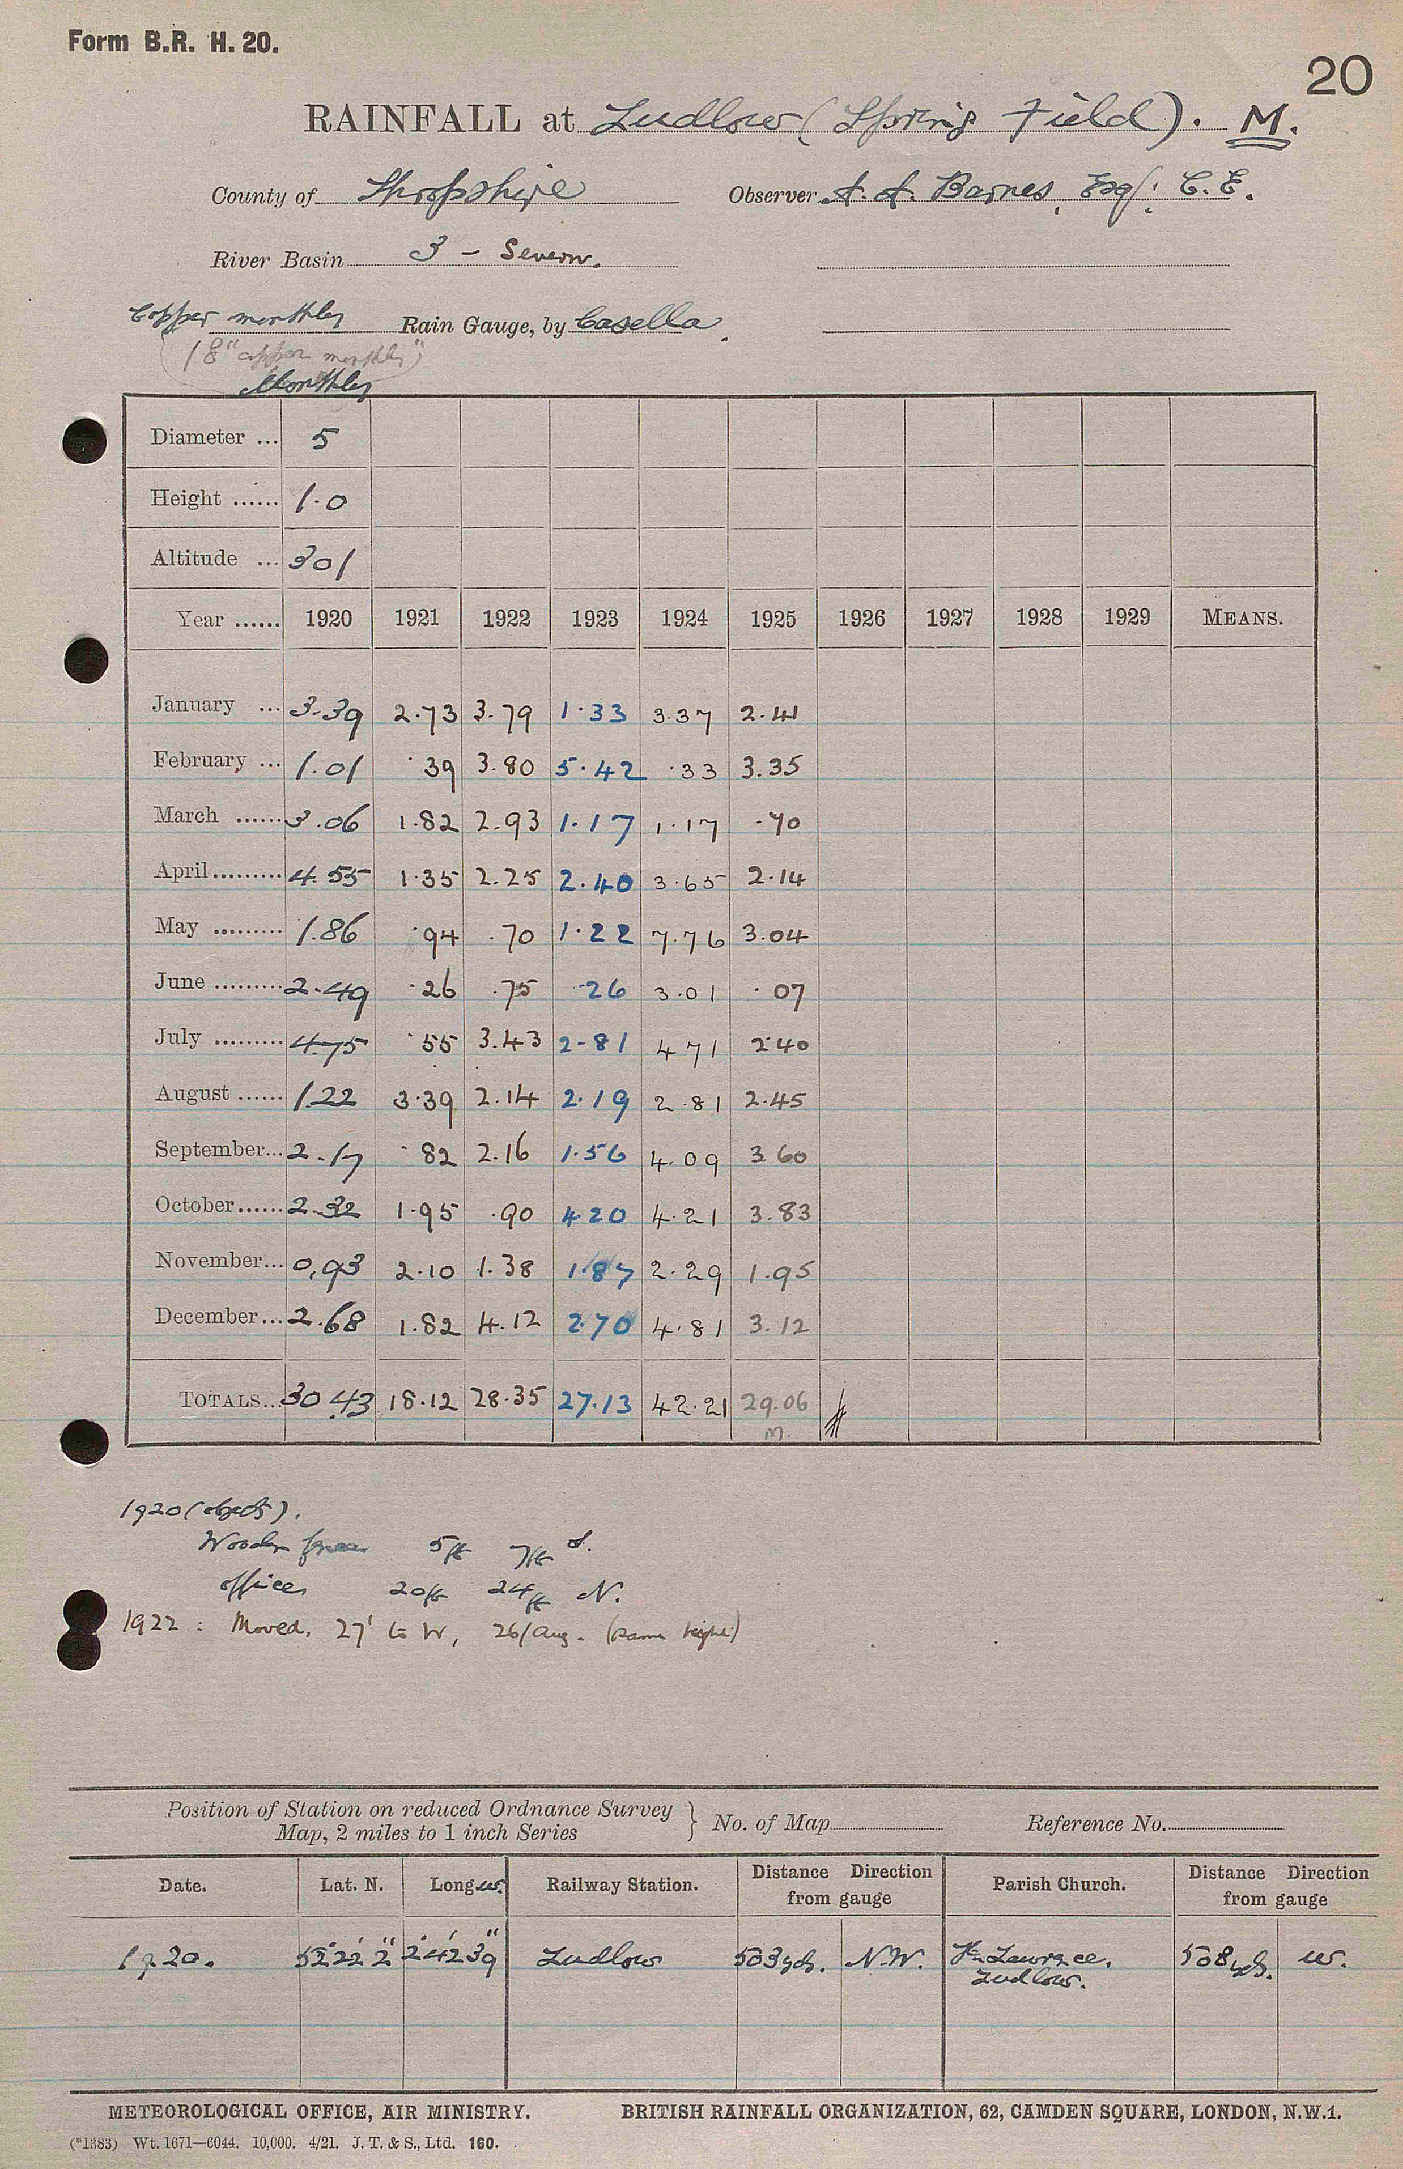 Form B.R. H. 20.
20
RAINFALL at Ludlow (Spring Field). M.
County of Shropshire Observer A. A. Barnes, Esq: C.E.
River Basin 3 - Severn.
Copper monthly Rain Gauge, by Casella.
(8" copper monthly")
Monthly
Diameter ... 5
Height ...... 1.0
Altitude ... 301
Year ...... 1920 1921 1922 1923 1924 1925 1926 1927 1928 1929 MEANS.
January ... 3.39 2.73 3.79 1.33 3.37 2.41
February ... 1.01 .39 3.80 5.42 .33 3.35
March ...... 3.06 1.82 2.93 1.17 1.17 .70
April ......... 4.55 1.35 2.25 2.40 3.65 2.14
May ......... 1.86 .94 .70 1.22 7.76 3.04
June ......... 2.49 .26 .75 .26 3.01 .07
July ......... 4.75 .55 3.43 2.81 4.71 2.40
August ...... 1.22 3.39 2.14 2.19 2.81 2.45
September... 2.17 .82 2.16 1.56 4.09 3.60
October...... 2.32 1.95 .90 4.20 4.21 3.83
November... 0.93 2.10 1.38 1.87 2.29 1.95
December... 2.68 1.82 4.12 2.70 4.81 3.12
TOTALS... 30.43 18.12 28.35 27.13 42.21 29.06
M.
1920 (objects).
Wooden fence 5ft 7ft S.
offices 20ft 24ft N.
1922 : Moved, 27' to W, 26/Aug. (same height)
Position of Station on reduced Ordnance Survey
Map, 2 miles to 1 inch Series } No. of Map Reference No.
Date. Lat. N. Long. W. Railway Station. Distance Direction from gauge Parish Church. Distance Direction from gauge
1920. 52° 22' 2" 2° 42' 39" Ludlow 503 yds. N.W. St. Lawrence, 508 yds. W.
Ludlow.
METEOROLOGICAL OFFICE, AIR MINISTRY. BRITISH RAINFALL ORGANIZATION, 62, CAMDEN SQUARE, LONDON, N.W.1.
(*1383) Wt. 1671—6044. 10,000. 4/21. J. T. & S., Ltd. 160.